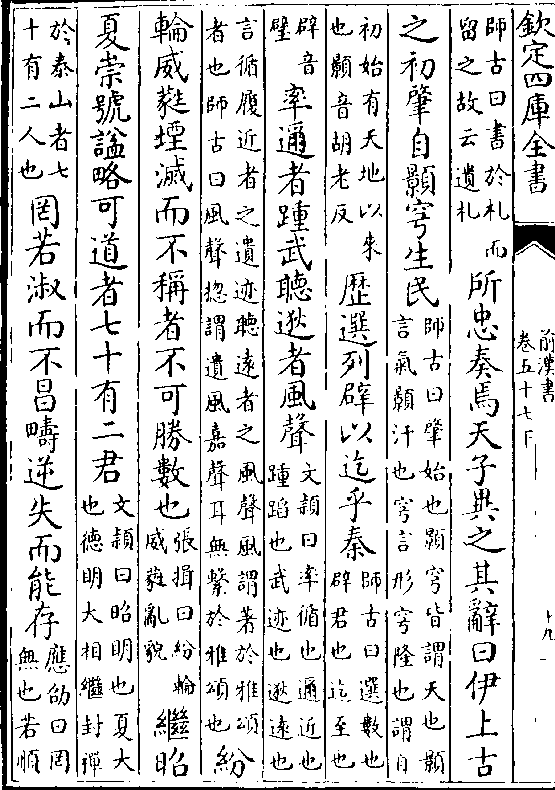 欽定四庫全書
前漢書
卷五十七下
十九
師古曰書於札而
留之故云遺札
所忠奏焉天子異之其辭曰伊上古
之初肇自顥穹生民
師古曰肇始也顥穹皆謂天也顥
言氣顥汗也穹言形穹隆也謂自
初始有天地以来
也顥音胡老反
歴選列辟以迄乎秦
師古曰選數也
辟君也迄至也
辟音
璧
率邇者踵武聽逖者風聲
文頴曰率循也邇近也
踵蹈也武迹也逖逺也
言循履近者之遺迹聽逺者之風聲風謂著於雅頌
者也師古曰風聲揔謂遺風嘉聲耳無繫於雅頌也
紛
輪威蕤堙滅而不稱者不可勝數也
張揖曰紛輪
威蕤亂貌
繼昭
夏崇號諡略可道者七十有二君
文頴曰昭明也夏大
也德明大相繼封禪
於泰山者七
十有二人也
罔若淑而不昌疇逆失而能存
應劭曰罔
無也若順